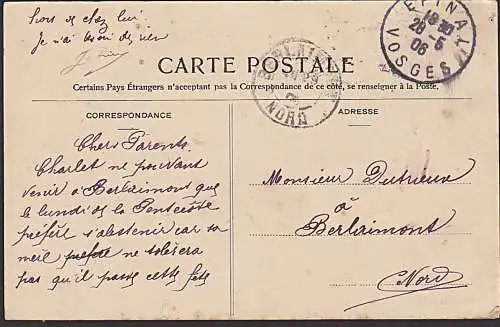 hors de chez lui
Je n'ai besoin de rien
EPINAL
18 30
28 - 5
06
VOSGES
BERLAIMONT
NORD
CARTE POSTALE
Certains Pays Étrangers n'acceptant pas la Correspondance de ce côté, se renseigner à la Poste.
CORRESPONDANCE
Chers Parents
Charlet ne pouvant
venir à Berlaimont que
le lundi de la Pentecôte
préfère s'abstenir car sa
meil préfère ne tolèsera
pas qu'il passe cette fête
ADRESSE
Monsieur Dutrieux
à
Berlaimont
Nord